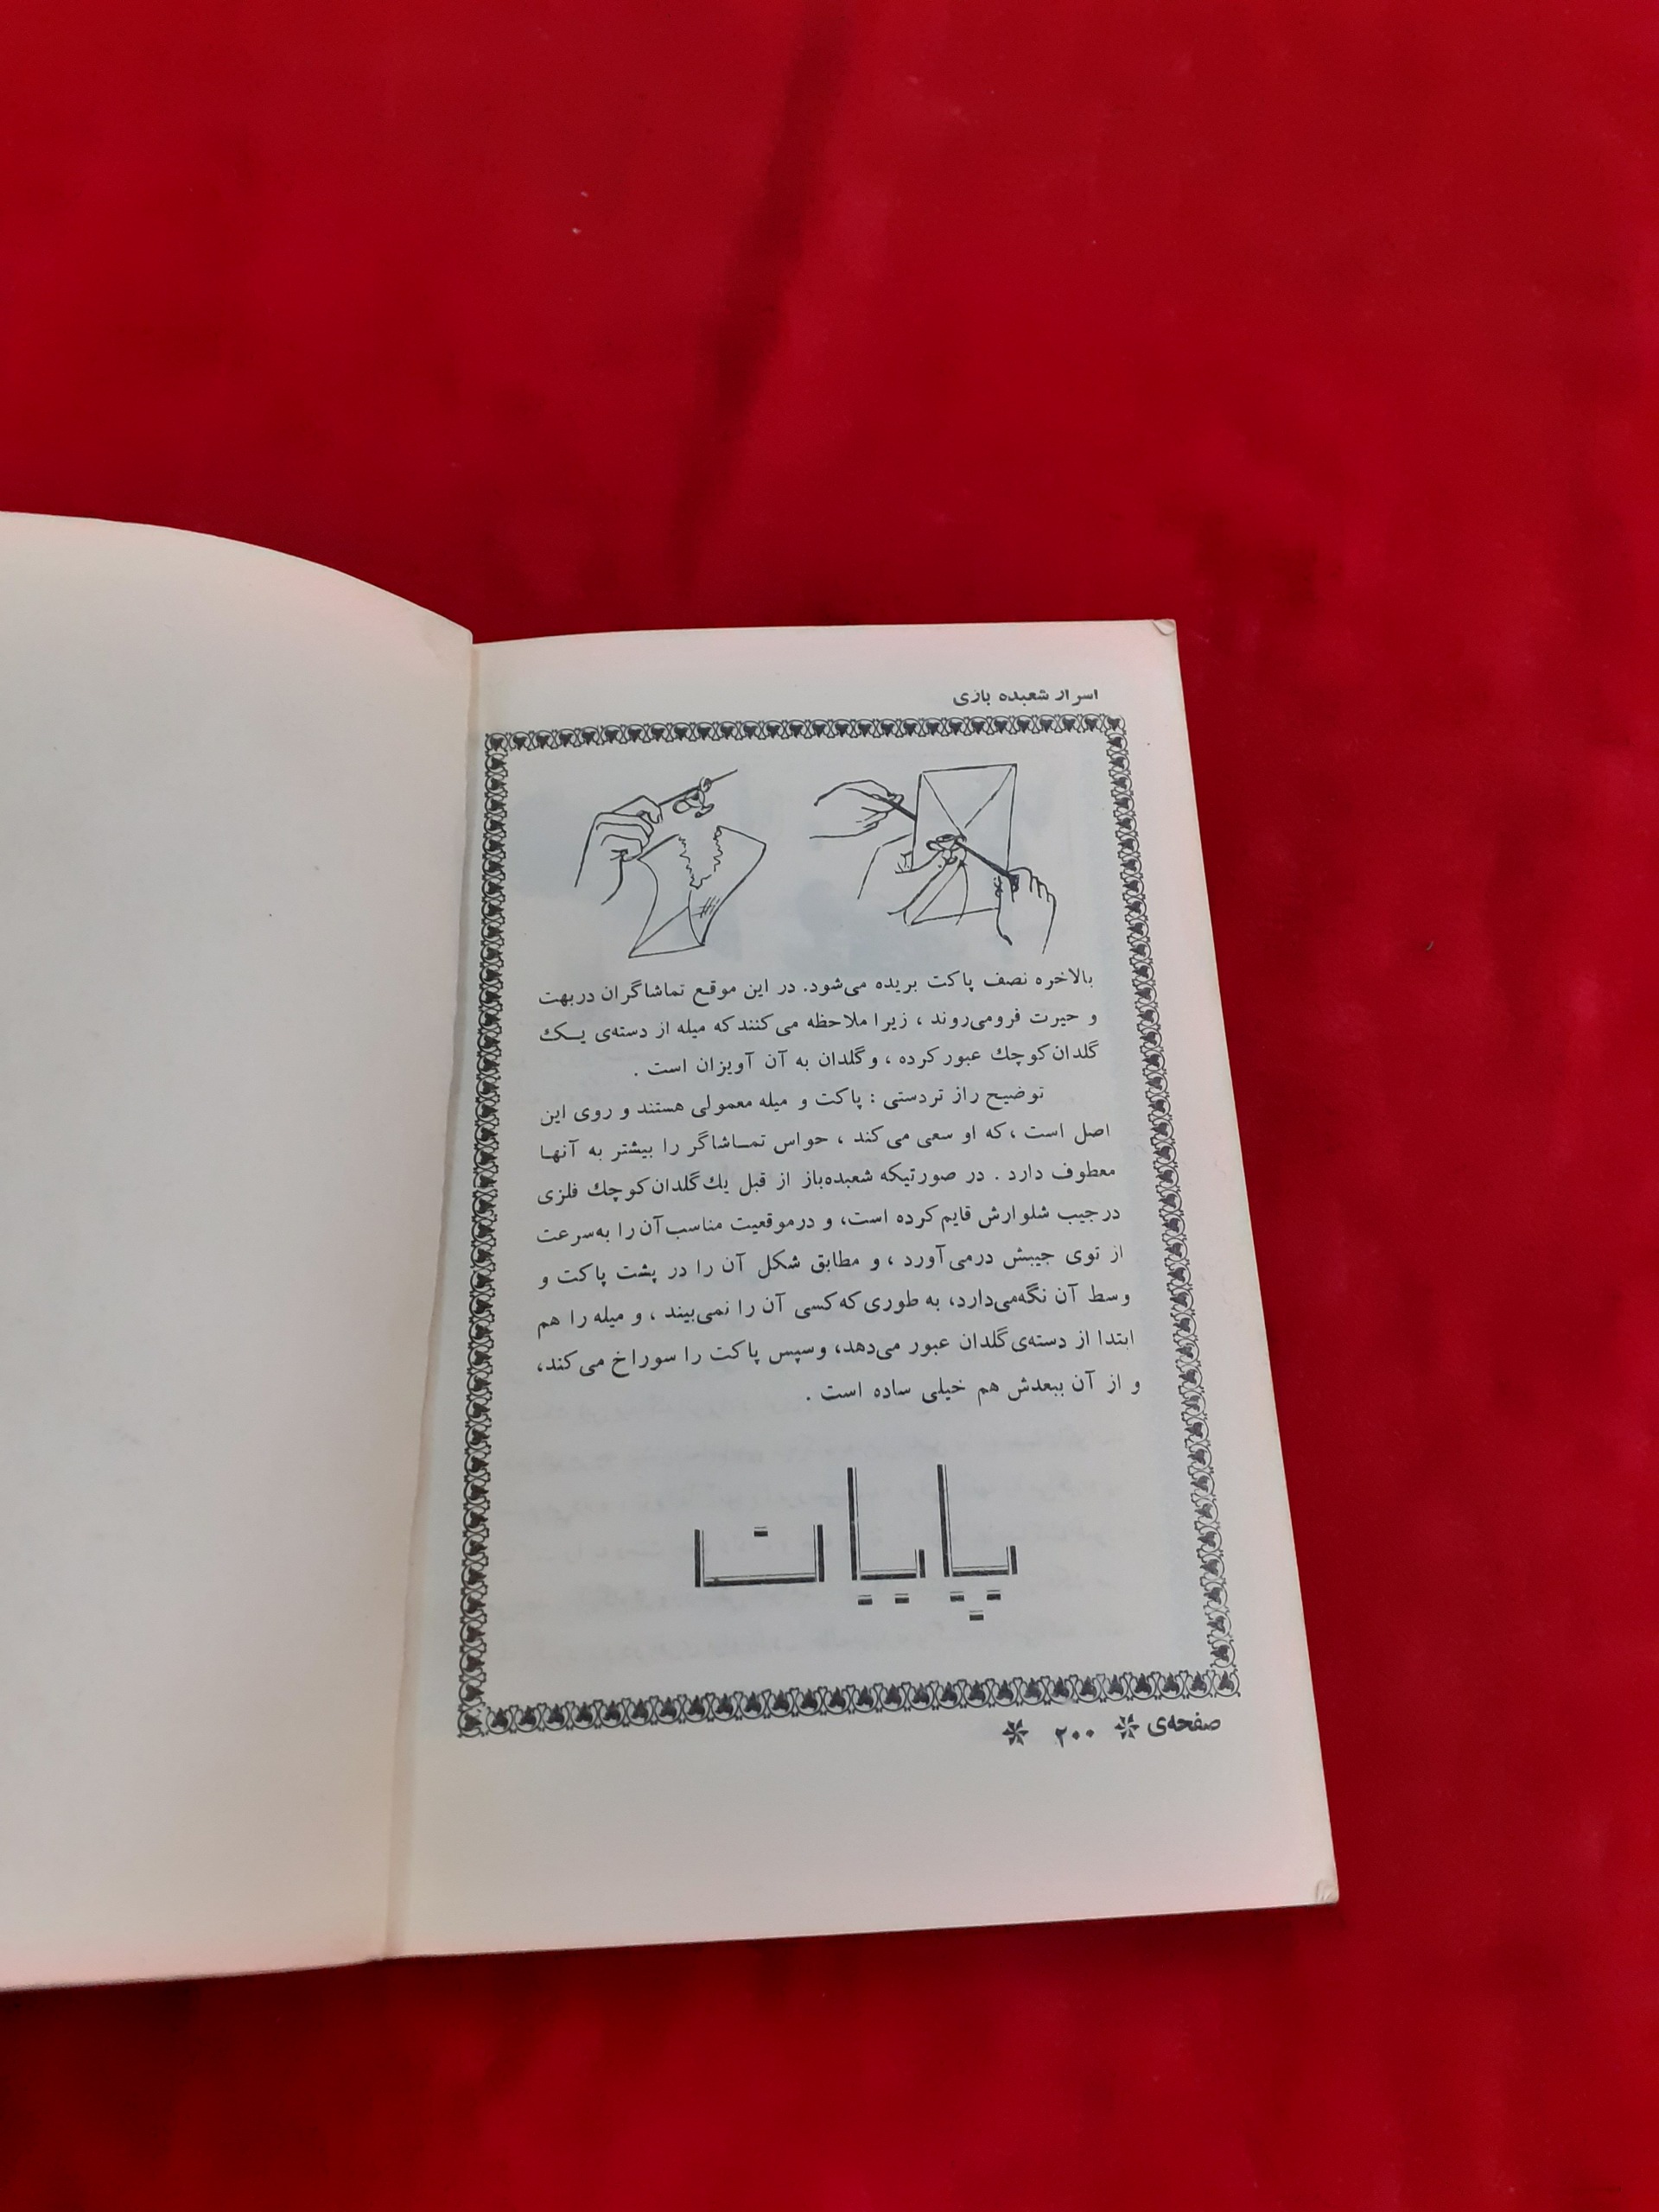 اسرار شعبده بازی
بالاخره نصف پاکت بریده می‌شود. در این موقع تماشاگران دربهت
و حیرت فرومی‌روند ، زیرا ملاحظه می‌کنند که میله از دسته‌ی یـک
گلدان کوچک عبور کرده ، و گلدان به آن آویزان است .
توضیح راز تردستی : پاکت و میله معمولی هستند و روی این
اصل است ، که او سعی می‌کند ، حواس تمـاشاگر را بیشتر به آنهـا
معطوف دارد . در صورتیکه شعبده‌باز از قبل یک گلدان کوچک فلزی
درجیب شلوارش قایم کرده است، و درموقعیت مناسب آن را به‌سرعت
از توی جیبش درمی‌آورد ، و مطابق شکل آن را در پشت پاکت و
وسط آن نگه‌می‌دارد، به طوری که کسی آن را نمی‌بیند ، و میله را هم
ابتدا از دسته‌ی گلدان عبور می‌دهد، وسپس پاکت را سوراخ می‌کند،
و از آن ببعدش هم خیلی ساده است .
پایان
صفحه‌ی * ۲۰۰ *